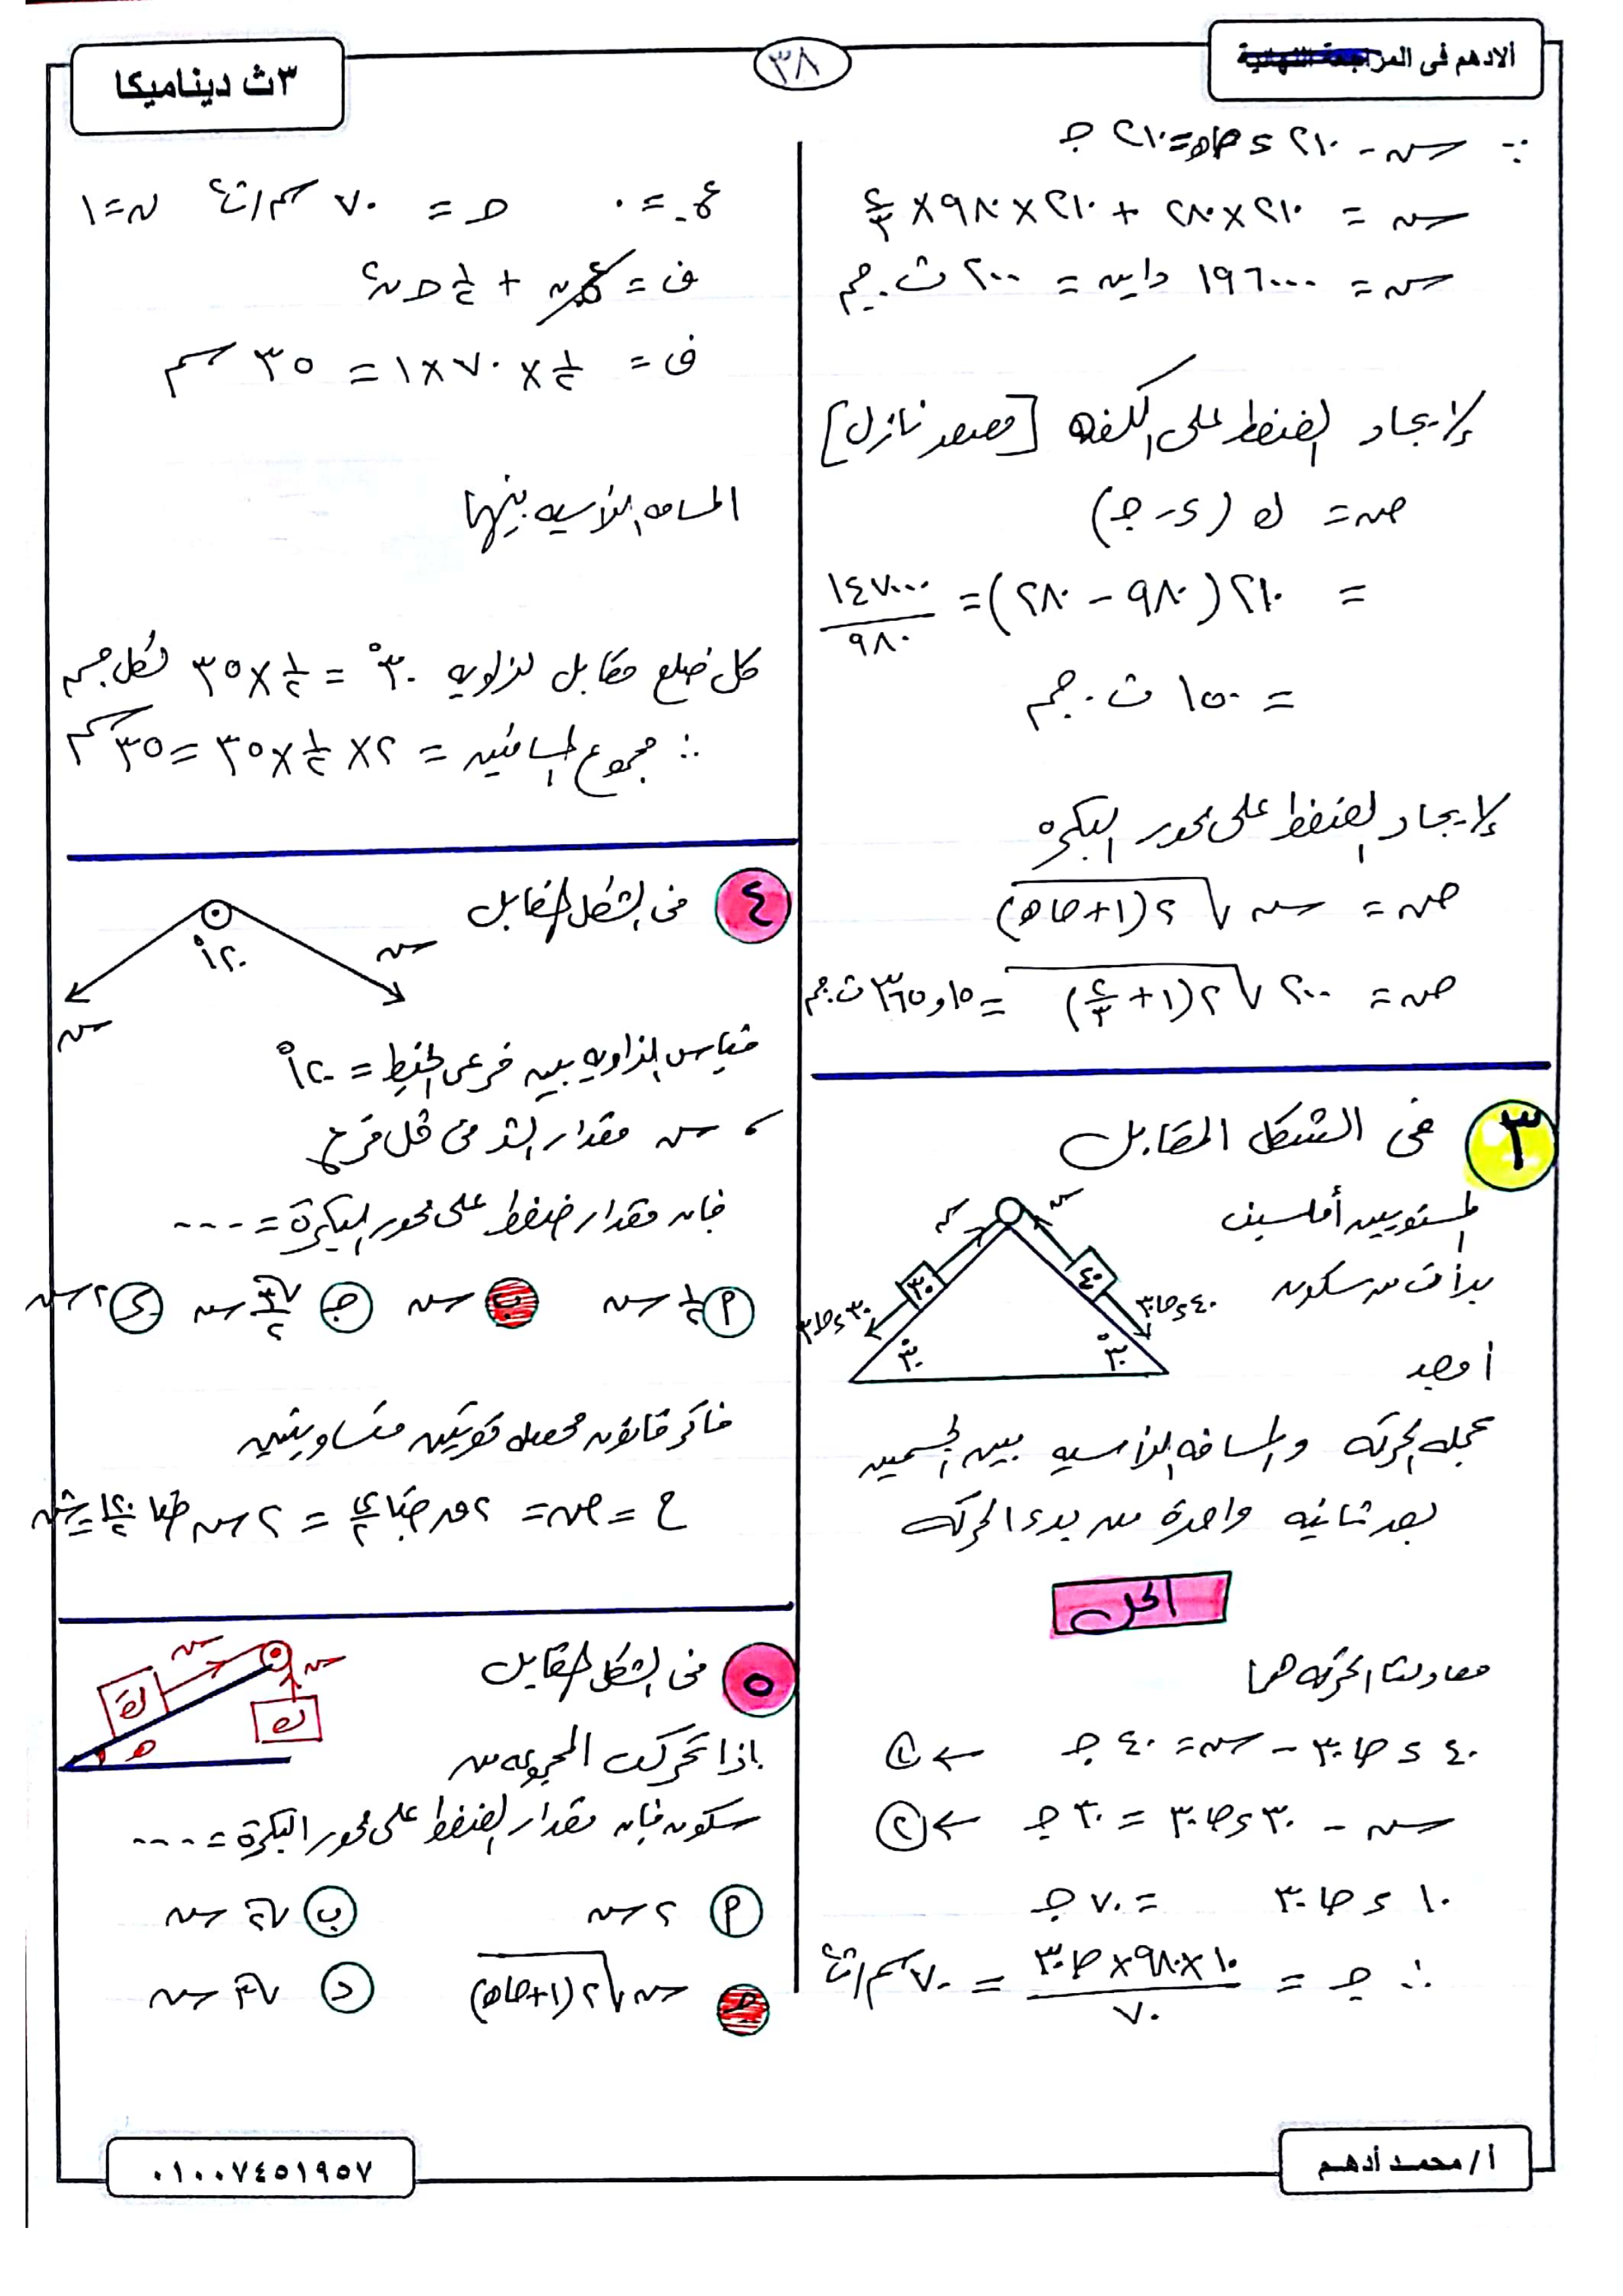 الادهم فى المراجعة النهائية
٣٨
٣ث ديناميكا
∵ سہ - ٢١٠ ء حاهـ = ٢١٠ جـ
سہ = ٢١٠ × ٢٨٠ + ٢١٠ × ٩٨٠ × ٢/٣
سہ = ١٩٦٠٠٠ داين = ٢٠٠ ث.جم
لإيجاد الضغط على الكفه [مصعد نازل]
صہ = ك (ء - جـ)
= ٢١٠ (٩٨٠ - ٢٨٠) = ١٤٧٠٠٠/٩٨٠
= ١٥٠ ث.جم
لإيجاد الضغط على محور البكره
صہ = سہ √٢(١+حاهـ)
صہ = ٢٠٠ √٢(١+٢/٣) = ٣٦٥,١٥ ث.جم
٣ فى الشكل المقابل
المستويين أملسين
بدأت من سكون
سہ سہ
٣٠ ٤٠
٣٠ ء حا٣٠ ٤٠ ء حا٣٠
٣٠° ٣٠°
أوجد
عجله الحركه والمسافه الرأسيه بين الجسمين
بعد ثانيه واحدة من بدء الحركه
الحل
معادلتا الحركه هما
٤٠ ء حا٣٠ - سہ = ٤٠ جـ ← ١
سہ - ٣٠ ء حا٣٠ = ٣٠ جـ ← ٢
١٠ ء حا٣٠ = ٧٠ جـ
∴ جـ = ١٠×٩٨٠×حا٣٠/٧٠ = ٧٠ سم/ث٢
ع. = ٠ حـ = ٧٠ سم/ث٢ ن = ١
ف = ع.ن + ١/٢ حـ ن٢
ف = ١/٢ × ٧٠ × ١ = ٣٥ سم
المسافه الرأسيه بينهما
كل ضلع مقابل لزاويه ٣٠° = ١/٢ × ٣٥ لكل جسم
∴ مجموع المسافتين = ٢ × ١/٢ × ٣٥ = ٣٥ سم
٤ فى الشكل المقابل
١٢٠°
سہ سہ
قياس الزاويه بين فرعى الخيط = ١٢٠°
، سہ مقدار الشد فى كل فرع
فإن مقدار ضغط على محور البكرة = ---
أ ١/٢ سہ ب سہ جـ √٣/٢ سہ ء ٢ سہ
فاكر قانون محصله قوتين متساويتين
ح = صہ = ٢ ور حتا ى/٢ = ٢ سہ حتا ١٢٠/٢ = سہ
٥ فى الشكل المقابل
سہ سہ
ك ك
هـ
إذا تحركت المجموعه من
سكون فإن مقدار الضغط على محور البكرة = ---
أ ٢ سہ ب √٢ سہ
جـ سہ √٢(١+حاهـ) د √٣ سہ
أ/محمد أدهم
٠١٠٠٧٤٥١٩٥٧